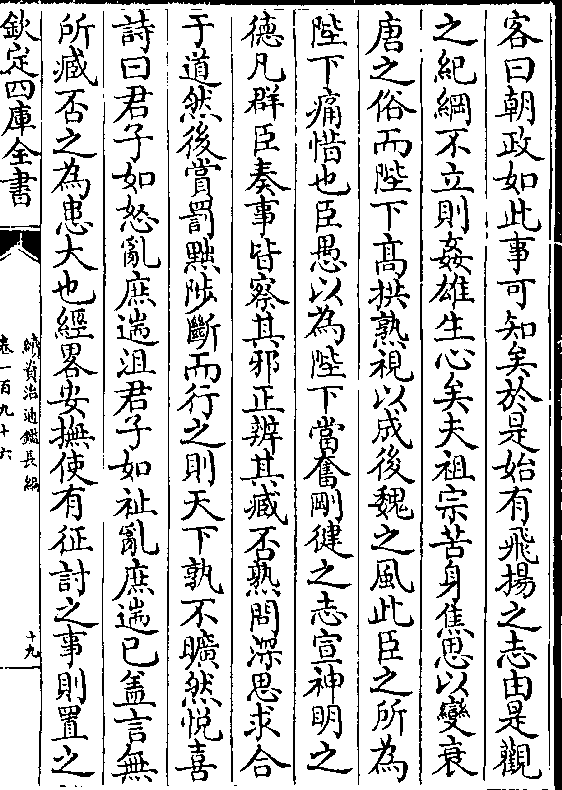 客曰朝政如此事可知矣於是始有飛揚之志由是觀
之紀綱不立則姦雄生心矣夫祖宗苦身焦思以變衰
唐之俗而陛下髙拱熟視以成後魏之風此臣之所為
陛下痛惜也臣愚以為陛下當奮剛健之志宣神明之
德凡群臣奏事皆察其邪正辨其臧否熟問深思求合
于道然後賞罰黜陟斷而行之則天下孰不曠然悦喜
詩曰君子如怒亂庶遄沮君子如祉亂庶遄已盖言無
所臧否之為患大也經畧安撫使有征討之事則置之
欽定四庫全書
續資治通鑑長編
卷一百九十六
十九